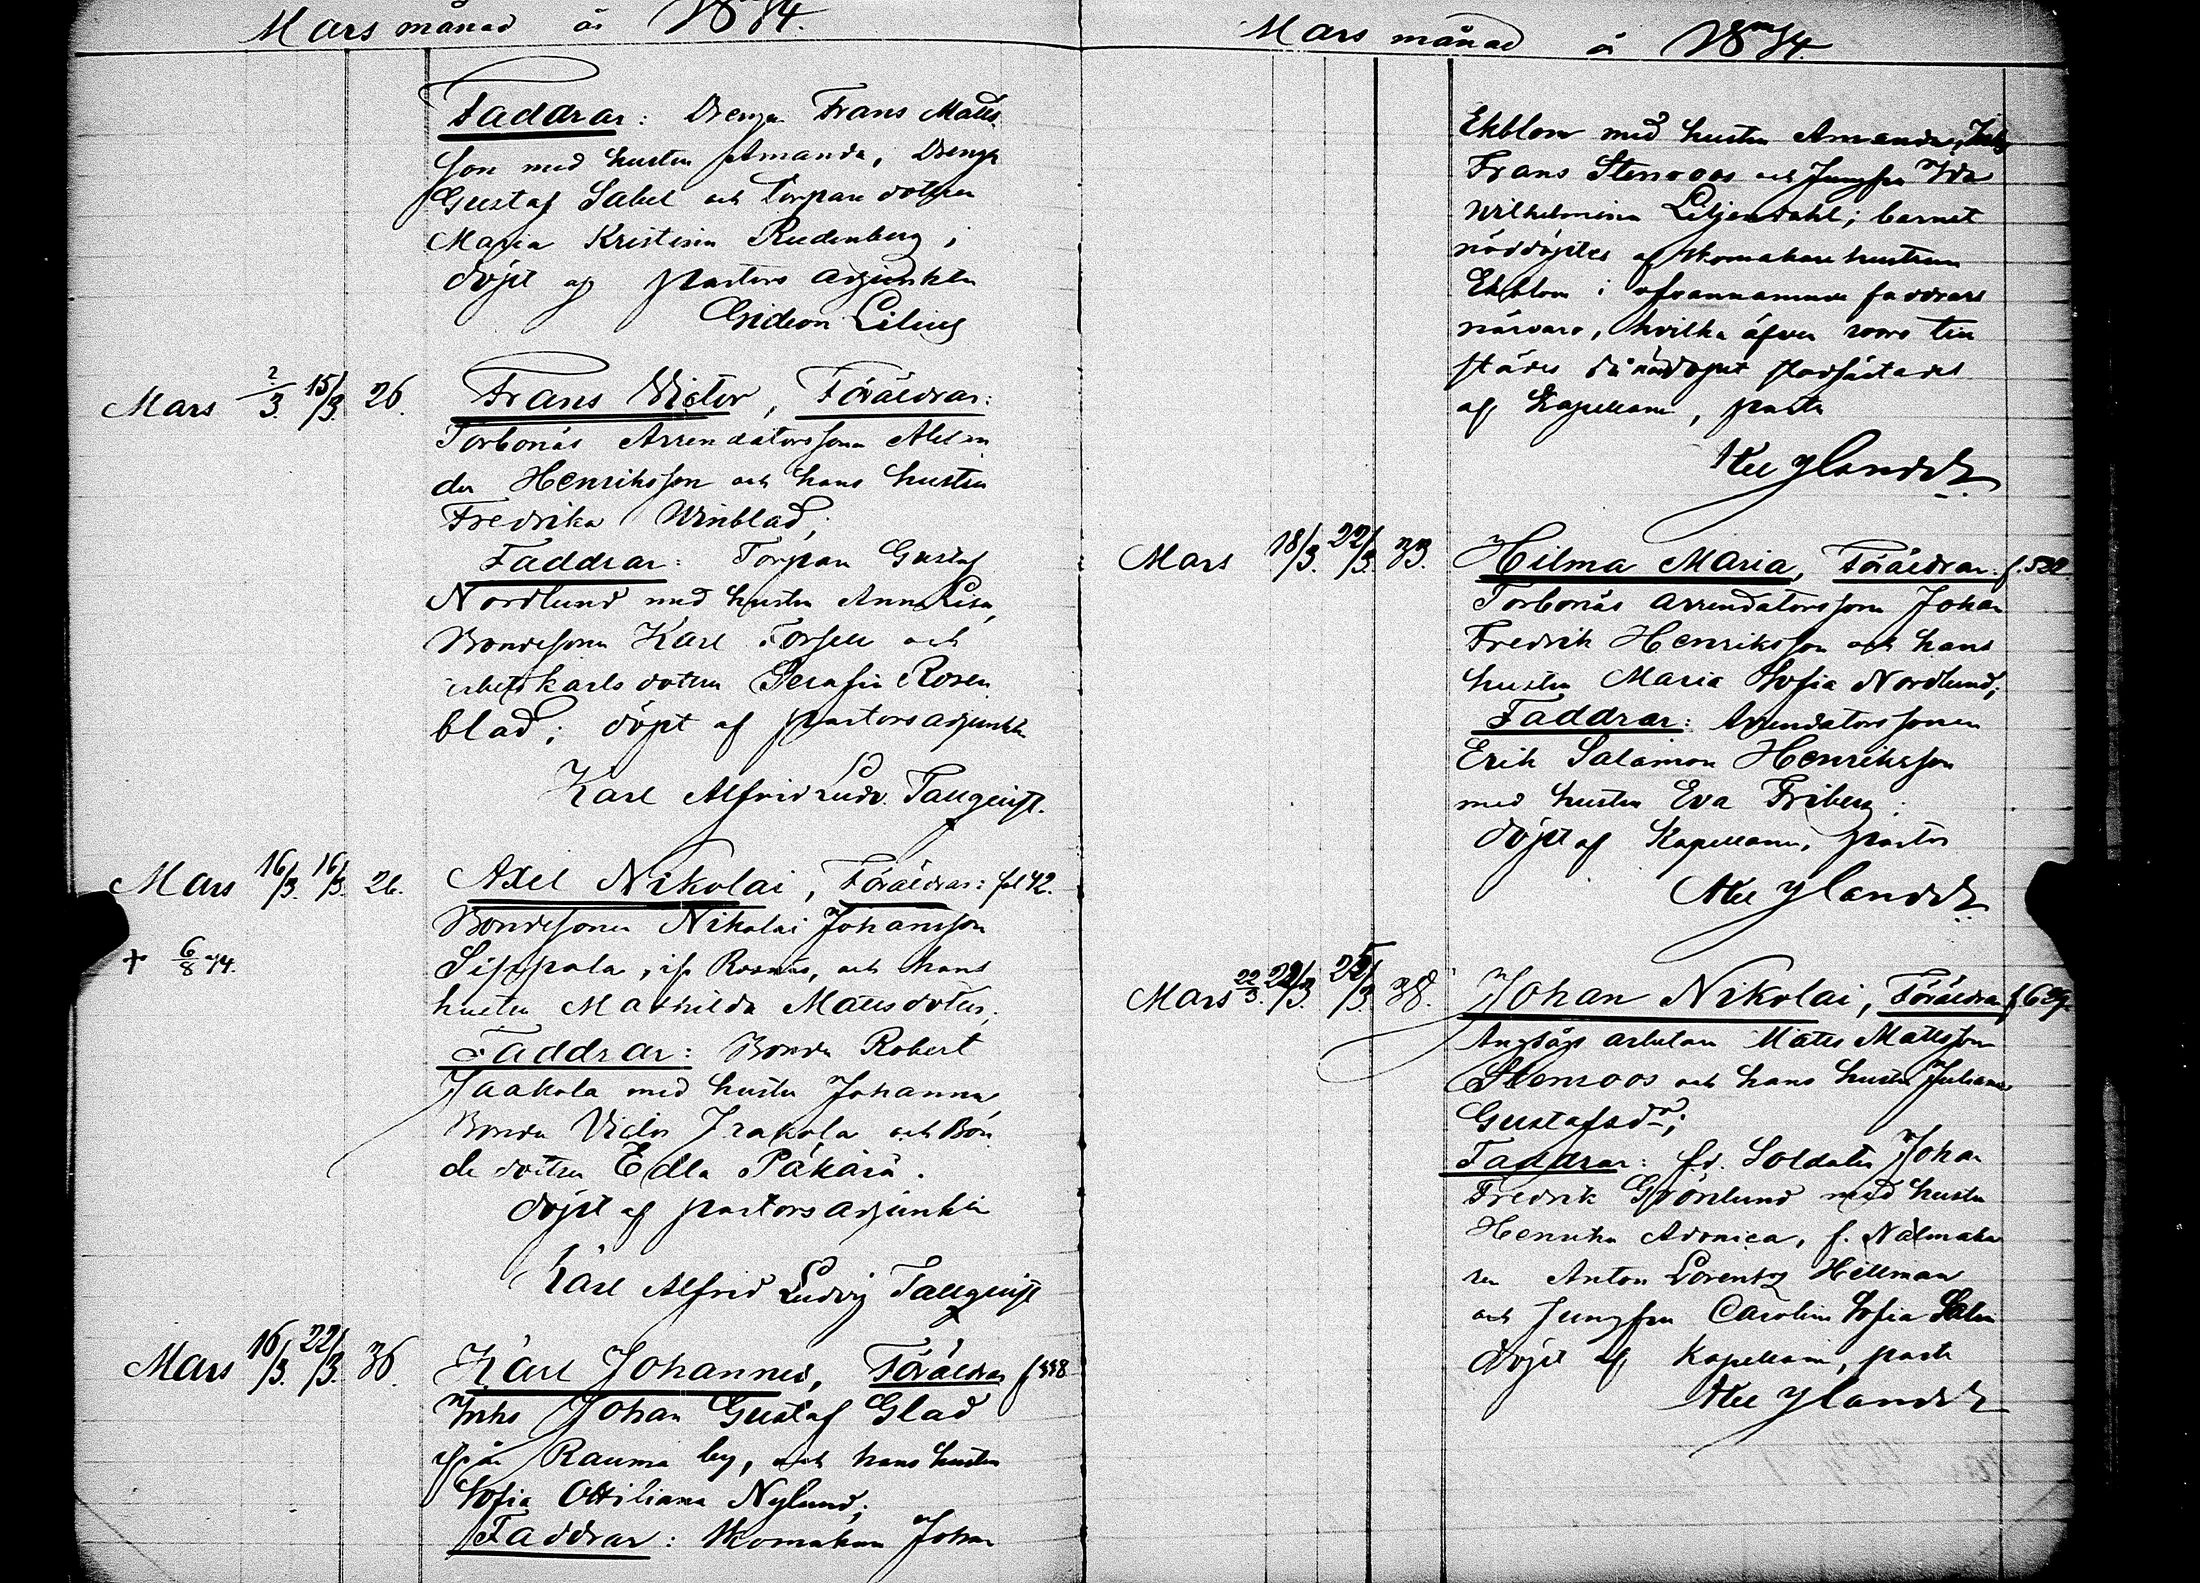 Mars månad år 1874.
Faddrar: Dreng. Frans Matts
son med hustru Amanda, Dreng.
Gustaf Sabel och Torpare dottren
Maria Kristina Rudenberg;
döpt af pastors adjunkten
Gideon Lilius
Mars 2/3 15/3. 26. Frans Victor, Föräldrar:
Torbonäs Arrendatorssonen Alexan
der Henriksson och hans hustru
Fredrika Winblad;
Faddrar: Torparn Gustaf
Nordlund med hustru Anna Lisa,
Bondesonen Karl Forsell och
arbetskarls dottren Serafia Rosen
blad; döpt af pastors adjunkten
Karl Alfrid Ludv. Tallqvist.
Mars 16/3. 16/3. 26. Axel Nikolai, Föräldrar: fol 42.
Bondesonen Nikolai Johansson
+ 6/8 74. Sippola, och hans
hustru Mathilda Mattsdotter;
Faddrar: Bonden Robert
Jaakola med hustru Johanna,
Bonden Victor Jaakola och Bon
de dottren Edla Päkärä.
döpt af pastors adjunkten
Karl Alfrid Ludvig Tallqvist
Mars 16/3. 22/3. 36. Karl Johannes, Föräldrar f. 338
Inhs Johan Gustaf Glad
ifrån Rauma by, och hans hustru
Sofia Ottiliana Nylund;
Faddrar: Skomakaren Johan
Mars månad år 1874.
Ekblom med hustru Amanda,
Frans Stenroos och Jungfru Ida
Wilhelmina Liljendahl; barnet
nöddöptes af skomakare hustrun
Ekblom i ofvannämnde faddrars
närvaro, hvilka äfven voro till
städes då nöddopet stadfästades
af Kapellanen, pastor
Nylander
Mars 18/3. 22/3. 33. Hilma Maria, Föräldrar: f. 522
Torbonäs arrendatorsson Johan
Fredrik Henriksson och hans
hustru Maria Sofia Nordlund;
Faddrar: Arrendatorssonen
Erik Salamon Henriksson
med hustru Eva Friberg:
döpt af Kapellanen, pastor
Nylander
Mars 22/3. 22/3. 25/3. 38. Johan Nikolai, Föräldrar f. 629
Ångsågs arbetaren Matts Mattsson
Stenroos och hans hustru Juliana
Gustafsdr;
Faddrar: f.d. Soldaten Johan
Fredrik Grönlund med hustru
Henrika Adonica, f. Nålmaka
ren Anton Lorentz Hellman
och Jungfru Carolina Sofia
döpt af Kapellanen, pastor
Nylander